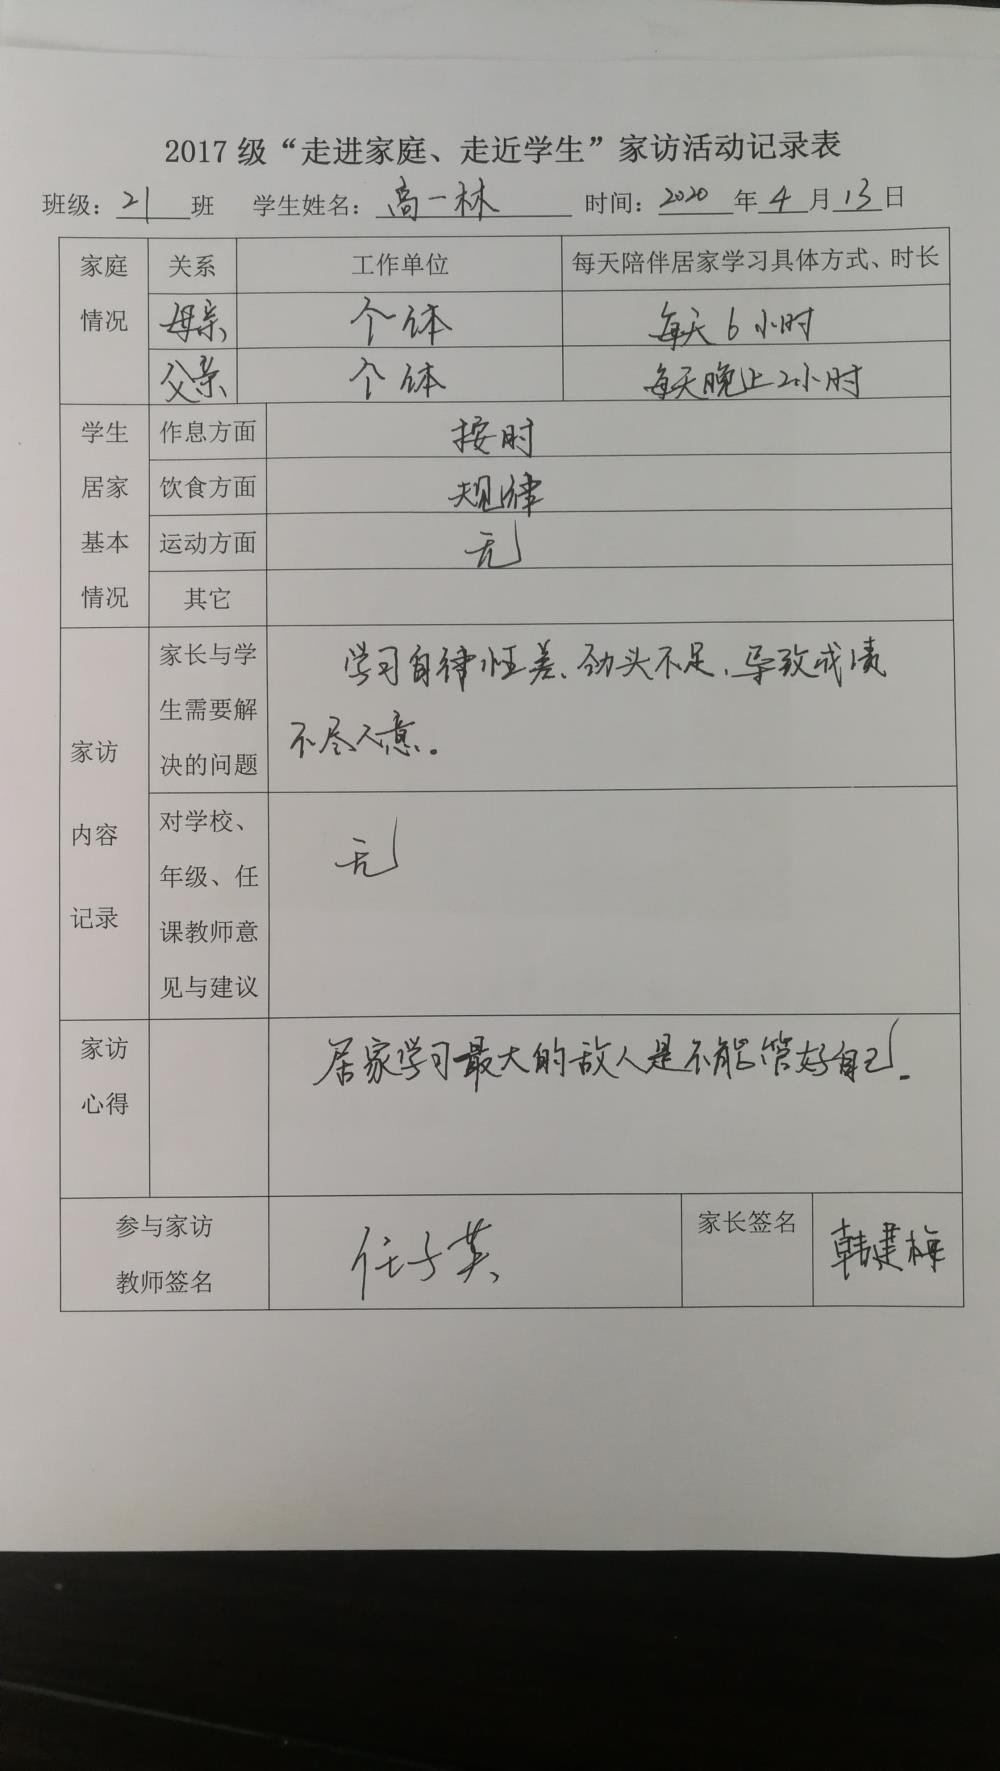 2017级“走进家庭、走近学生”家访活动记录表
班级：21班 学生姓名：高一林 时间：2020年4月13日
家庭 关系 工作单位 每天陪伴居家学习具体方式、时长
情况 母亲 个体 每天6小时
父亲 个体 每天晚上2小时
学生 作息方面 按时
居家 饮食方面 规律
基本 运动方面 无
情况 其它
家长与学 学习自律性差、劲头不足，导致成绩
生需要解 不尽人意。
家访 决的问题
对学校、
内容 年级、任 无
记录 课教师意
见与建议
家访 居家学习最大的敌人是不能管好自己。
心得
参与家访 任子英 家长签名 韩建梅
教师签名